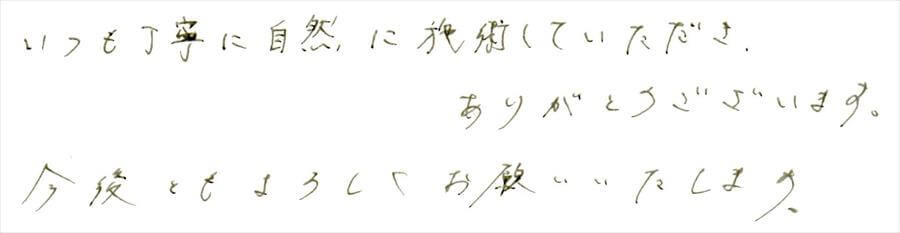 いつも丁寧に自然に施術していただき、
ありがとうございます。
今後ともよろしくお願いいたします。